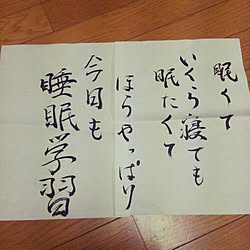 眠くて
いくら寝ても
眠たくて
ほらやっぱり
今日も
睡眠学習